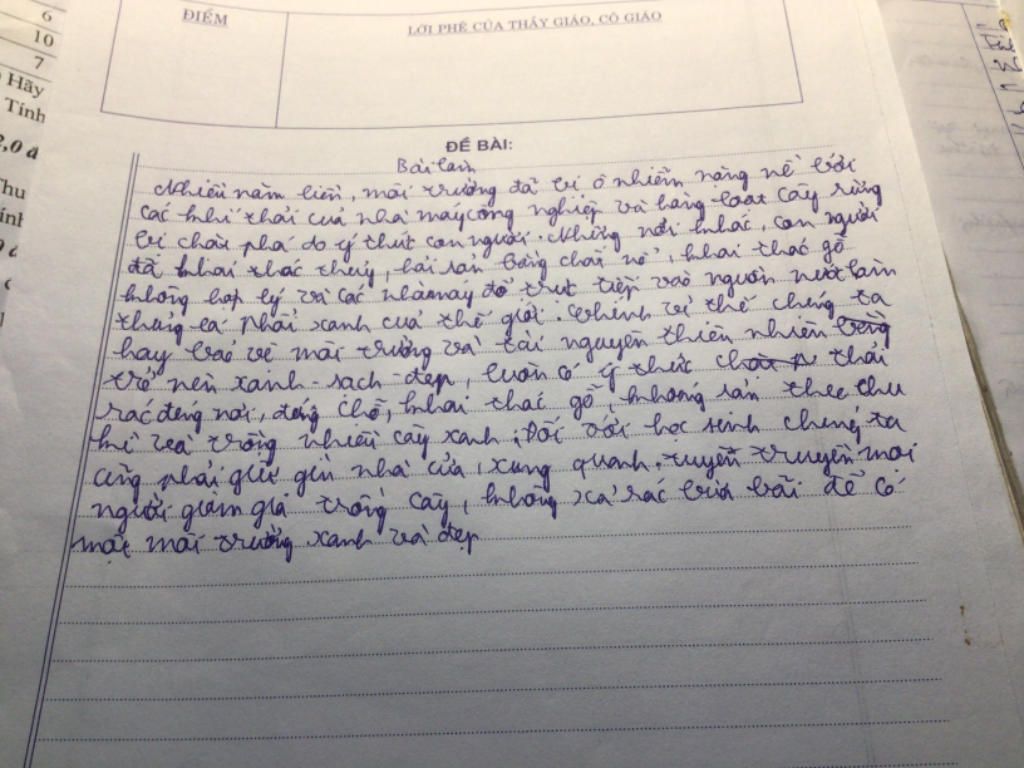 6
10
7
Hãy
Tính
2,0 đ
Thu
ĐIỂM
LỜI PHÊ CỦA THẦY GIÁO, CÔ GIÁO
ĐỀ BÀI:
Bài làm
Nhiều năm liền, môi trường đã bị ô nhiễm nặng nề bởi
các khí thải của nhà máy công nghiệp và hàng loạt cây rừng
bị chặt phá do ý thức con người. Những nơi khác, con người
đã khai thác thuỷ, hải sản bằng chất nổ, khai thác gỗ
không hợp lý và các nhà máy đổ trực tiếp vào nguồn nước làm
thủng lá phổi xanh của thế giới. Chính vì thế chúng ta
hãy bảo vệ môi trường và tài nguyên thiên nhiên
trở nên xanh - sạch - đẹp, luôn có ý thức thải
rác đúng nơi, đúng chỗ, khai thác gỗ, khoáng sản theo chu
kì và trồng nhiều cây xanh. Đối với học sinh chúng ta
cũng phải giữ gìn nhà cửa, xung quanh, tuyên truyền mọi
người tham gia trồng cây, không xả rác bừa bãi để có
một môi trường xanh và đẹp